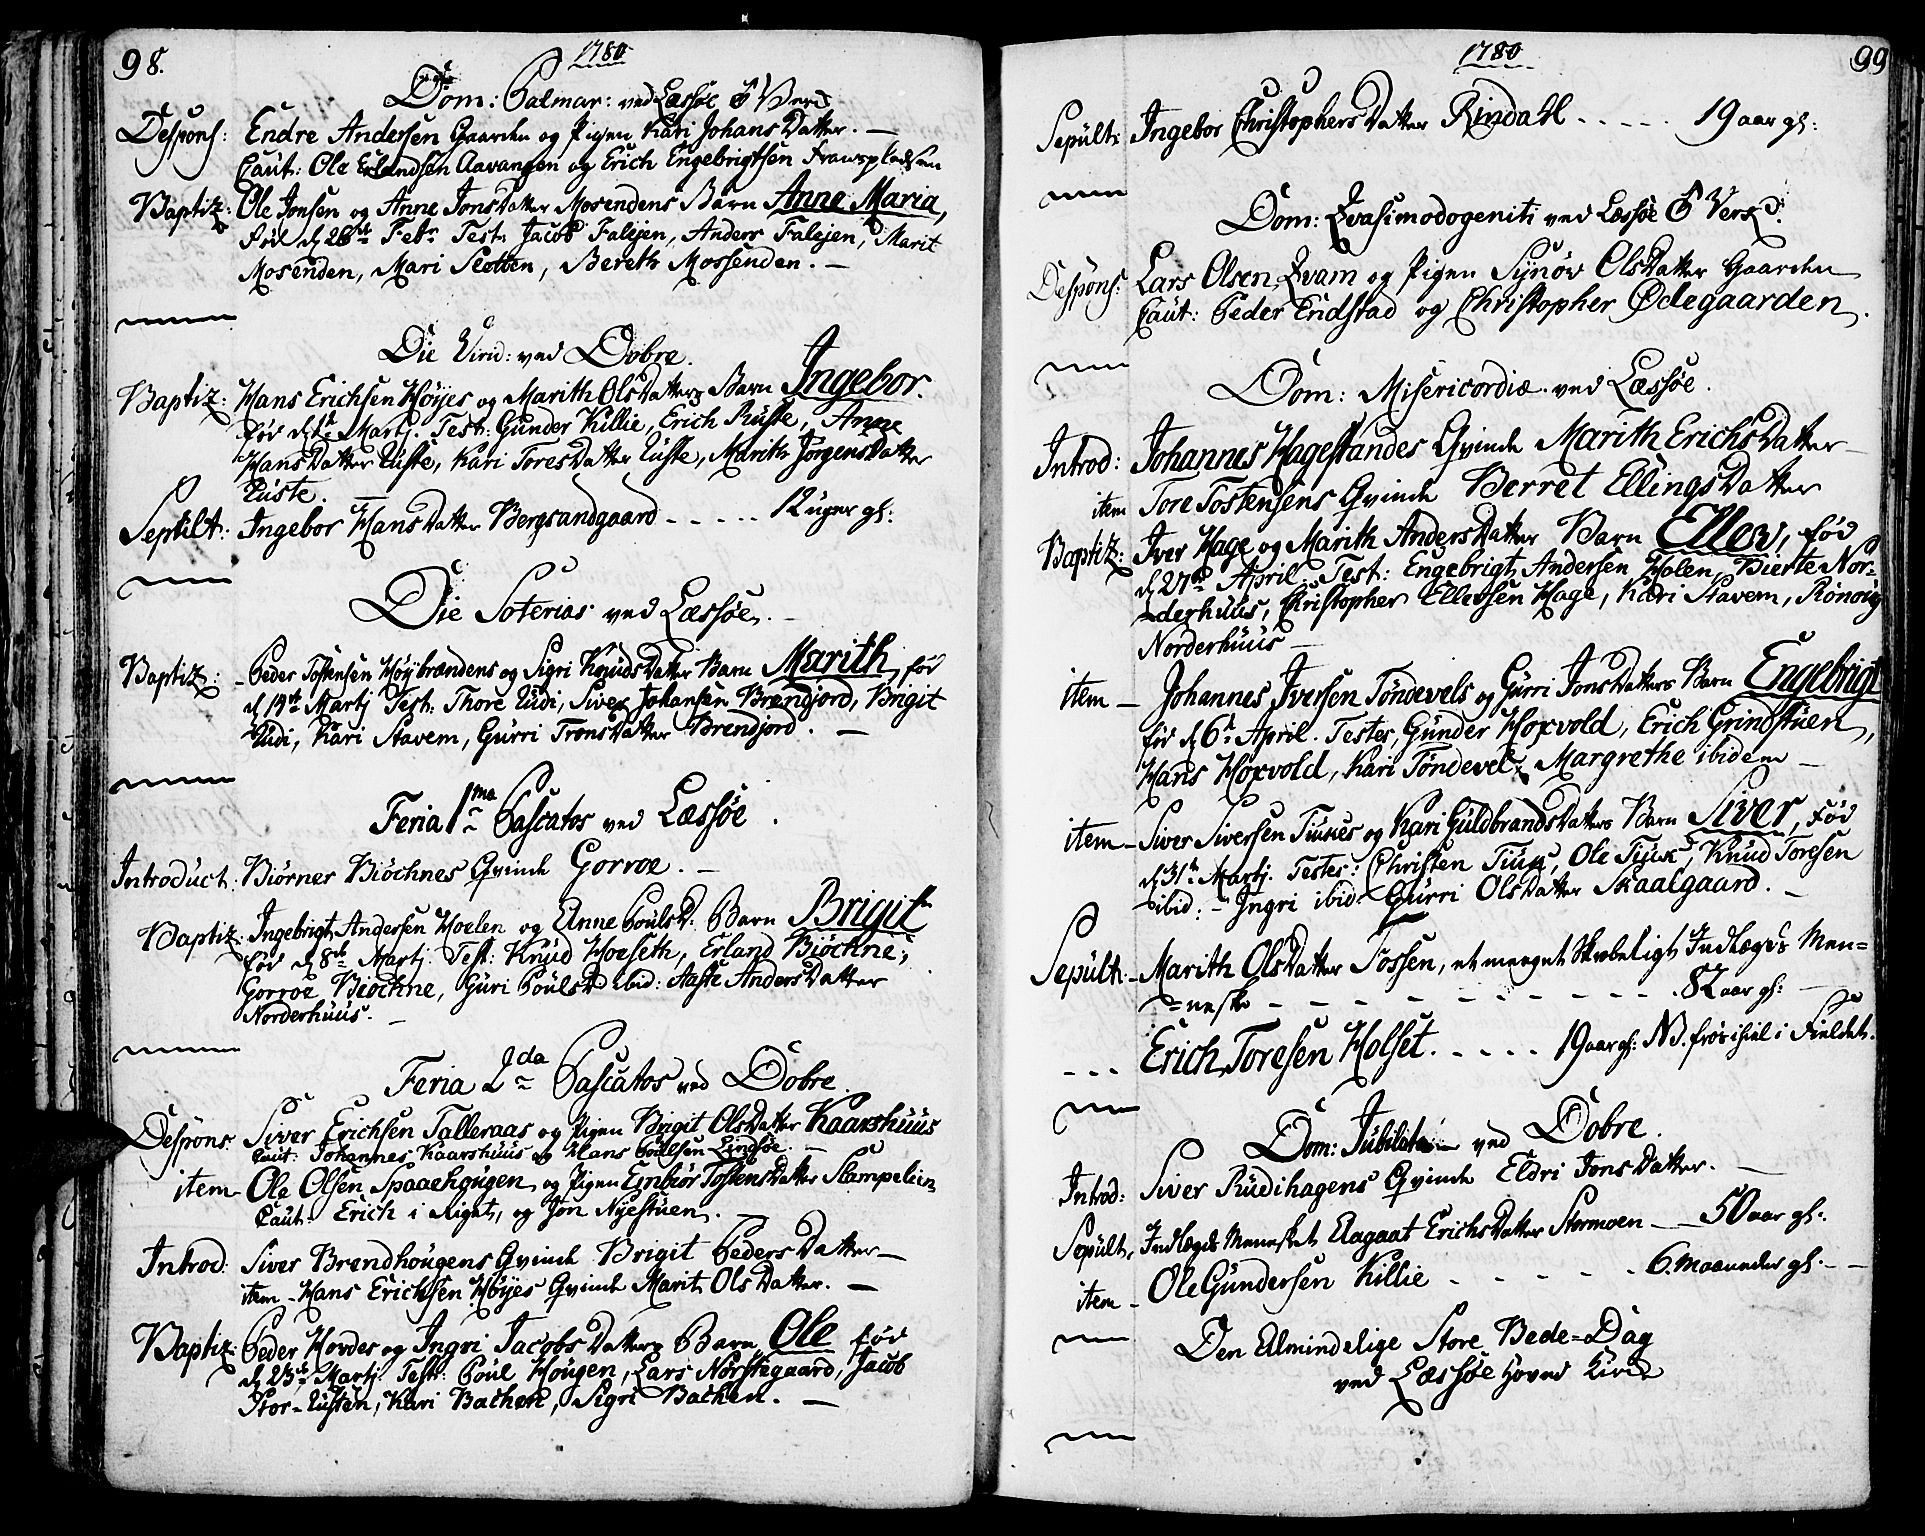 98.
1780
Dom: Palmar: ved Læssøe
Despons: Endre Andersen Gaarden og Pigen Kari Johans Datter. —
Caut: Ole Erlandsen Aavangen og Erich Engebrigtsen
Baptiz: Ole Jonsen og Anne Jons Datter Mosendens Barn Anne Maria,
Fød d 26de Febr. Test: Jacob Falejen, Anders Falejen, Marit
Mosenden, Mari Slotten, Bereth Mossenden. —
Die Virid: ved Dobre.
Baptiz: Hans Erichsen Høyes og Marith Ols Datters Barn Ingebor.
fød d Martj. Test: Gunder Killie, Erich Ruste, Anne
Hans Datter Luste, Kari Tores Datter Luste, Marith Jørgens Datter
Luste.
Sepult: Ingebor Hans Datter Bergsandgaard - - - - - 12 uger gl:
Die Soterias ved Læssøe. -
Baptiz: Peder Tostensen Høybrændens og Sigri Knuds Datter Barn Marith, fød
d 19de Martj Test: Thore Ludi, Siver Johansen Brendjord, Brigit
Ludi, Kari Stavem, Gurri Trons Datter Brendjord. —
Feria 1ma Pascatos ved Læssøe.
Introduct: Biørner Biøchnes Qvinde Gorroe. —
Baptiz: Ingebrigt Andersen Hoelen og Anne Pouls D: Barn Brigit
fød d 8de Martj. Test: Knud Hoeseth, Erland Biøchne,
Gorroe Biøchne, Guri Pouls D ibid: Aaste Anders Datter
Norderhuus. —
Feria 2da Pascatos ved Dobre.
Despons: Siver Erichsen Talleraas og Pigen Brigit Ols Datter Kaarshuus
Caut: Johannes Kaarshuus og Hans Poulsen Lindsøe. —
item - Ole Olsen Spaaehougen og Pigen Embiør Tostens Datter
Caut: Erich i Riget, og Jon Nyestuen. —
Introd: Siver Brendhougens Qvinde Brigit Peders Datter —
item - Hans Erichsen Høyes Qvinde Marit Ols Datter. —
Baptiz: Peder Hovdes og Ingri Jacobs Datters Barn Ole fød
d 23de Martj. Test: Poul Hougen, Lars Norstegaard, Jacob
Stor-Lusten, Kari Bachen, Sigri Bachen. —
99
1780
Sepult: Ingebor Christophers Datter Rindahl - - - - - 19 aar gl:
Dom: Qvasimodogeniti ved Læssøe
Despons: Lars Olsen Qvam og Pigen Synøv Ols Datter Gaarden
Caut: Peder Endstad og Christopher Ødegaarden.
Dom: Misericordiæ ved Læssøe.
Introd: Johannes Hagestandes Qvinde Marith Erichs Datter —
item Tore Tostensens Qvinde Berret Ellings Datter
Baptiz: Iver Hage og Marith Anders Datter Barn Ellev, fød
d 27de April. Test: Engebrigt Andersen Holen, Bierte Nor=
derhuus, Christopher Ellevsen Hage, Kari Stavem, Rønnøig
Norderhuus —
item — Johannes Iversen Tøndevels og Gurri Jons Datters Barn Engebrigt
fød d 6te April. Testes, Gunder Hoxvold, Erich Grindstuen,
Hans Hoxvold, Kari Tøndevel, Margrethe ibidem —
item — Siver Siversen Tiuxes og Kari Guldbrands Datters Barn Siver, fød
d 31te Martj. Testes: Christen Tiux, Ole Tiux, Knud Toresen
ibid: - Ingri ibid Gurri Ols Datter Skaalgaard. —
Sepult: Marith Ols Datter Tossen, et meeget Skrøbeligt Indlægds Men=
=neske - - - - - - - - - - - - 82 aar gl: —
- - - Erich Toresen Holset. - - - - - 19 aar gl: NB. frøs ihiel i Fieldet.
Dom: Jubilate ved Dobre.
Introd: Siver Rudihagens Qvinde Eldri Jons Datter. —
Sepult: Indlægds Mennesket Aagaat Erichs Datter Stormoen — 50 aar gl:
item — Ole Gundersen Killie - - - - - - 6. Maaneder gl: —
Den Almindelige Store Bede=Dag
ved Læssøe Hoved Kirke